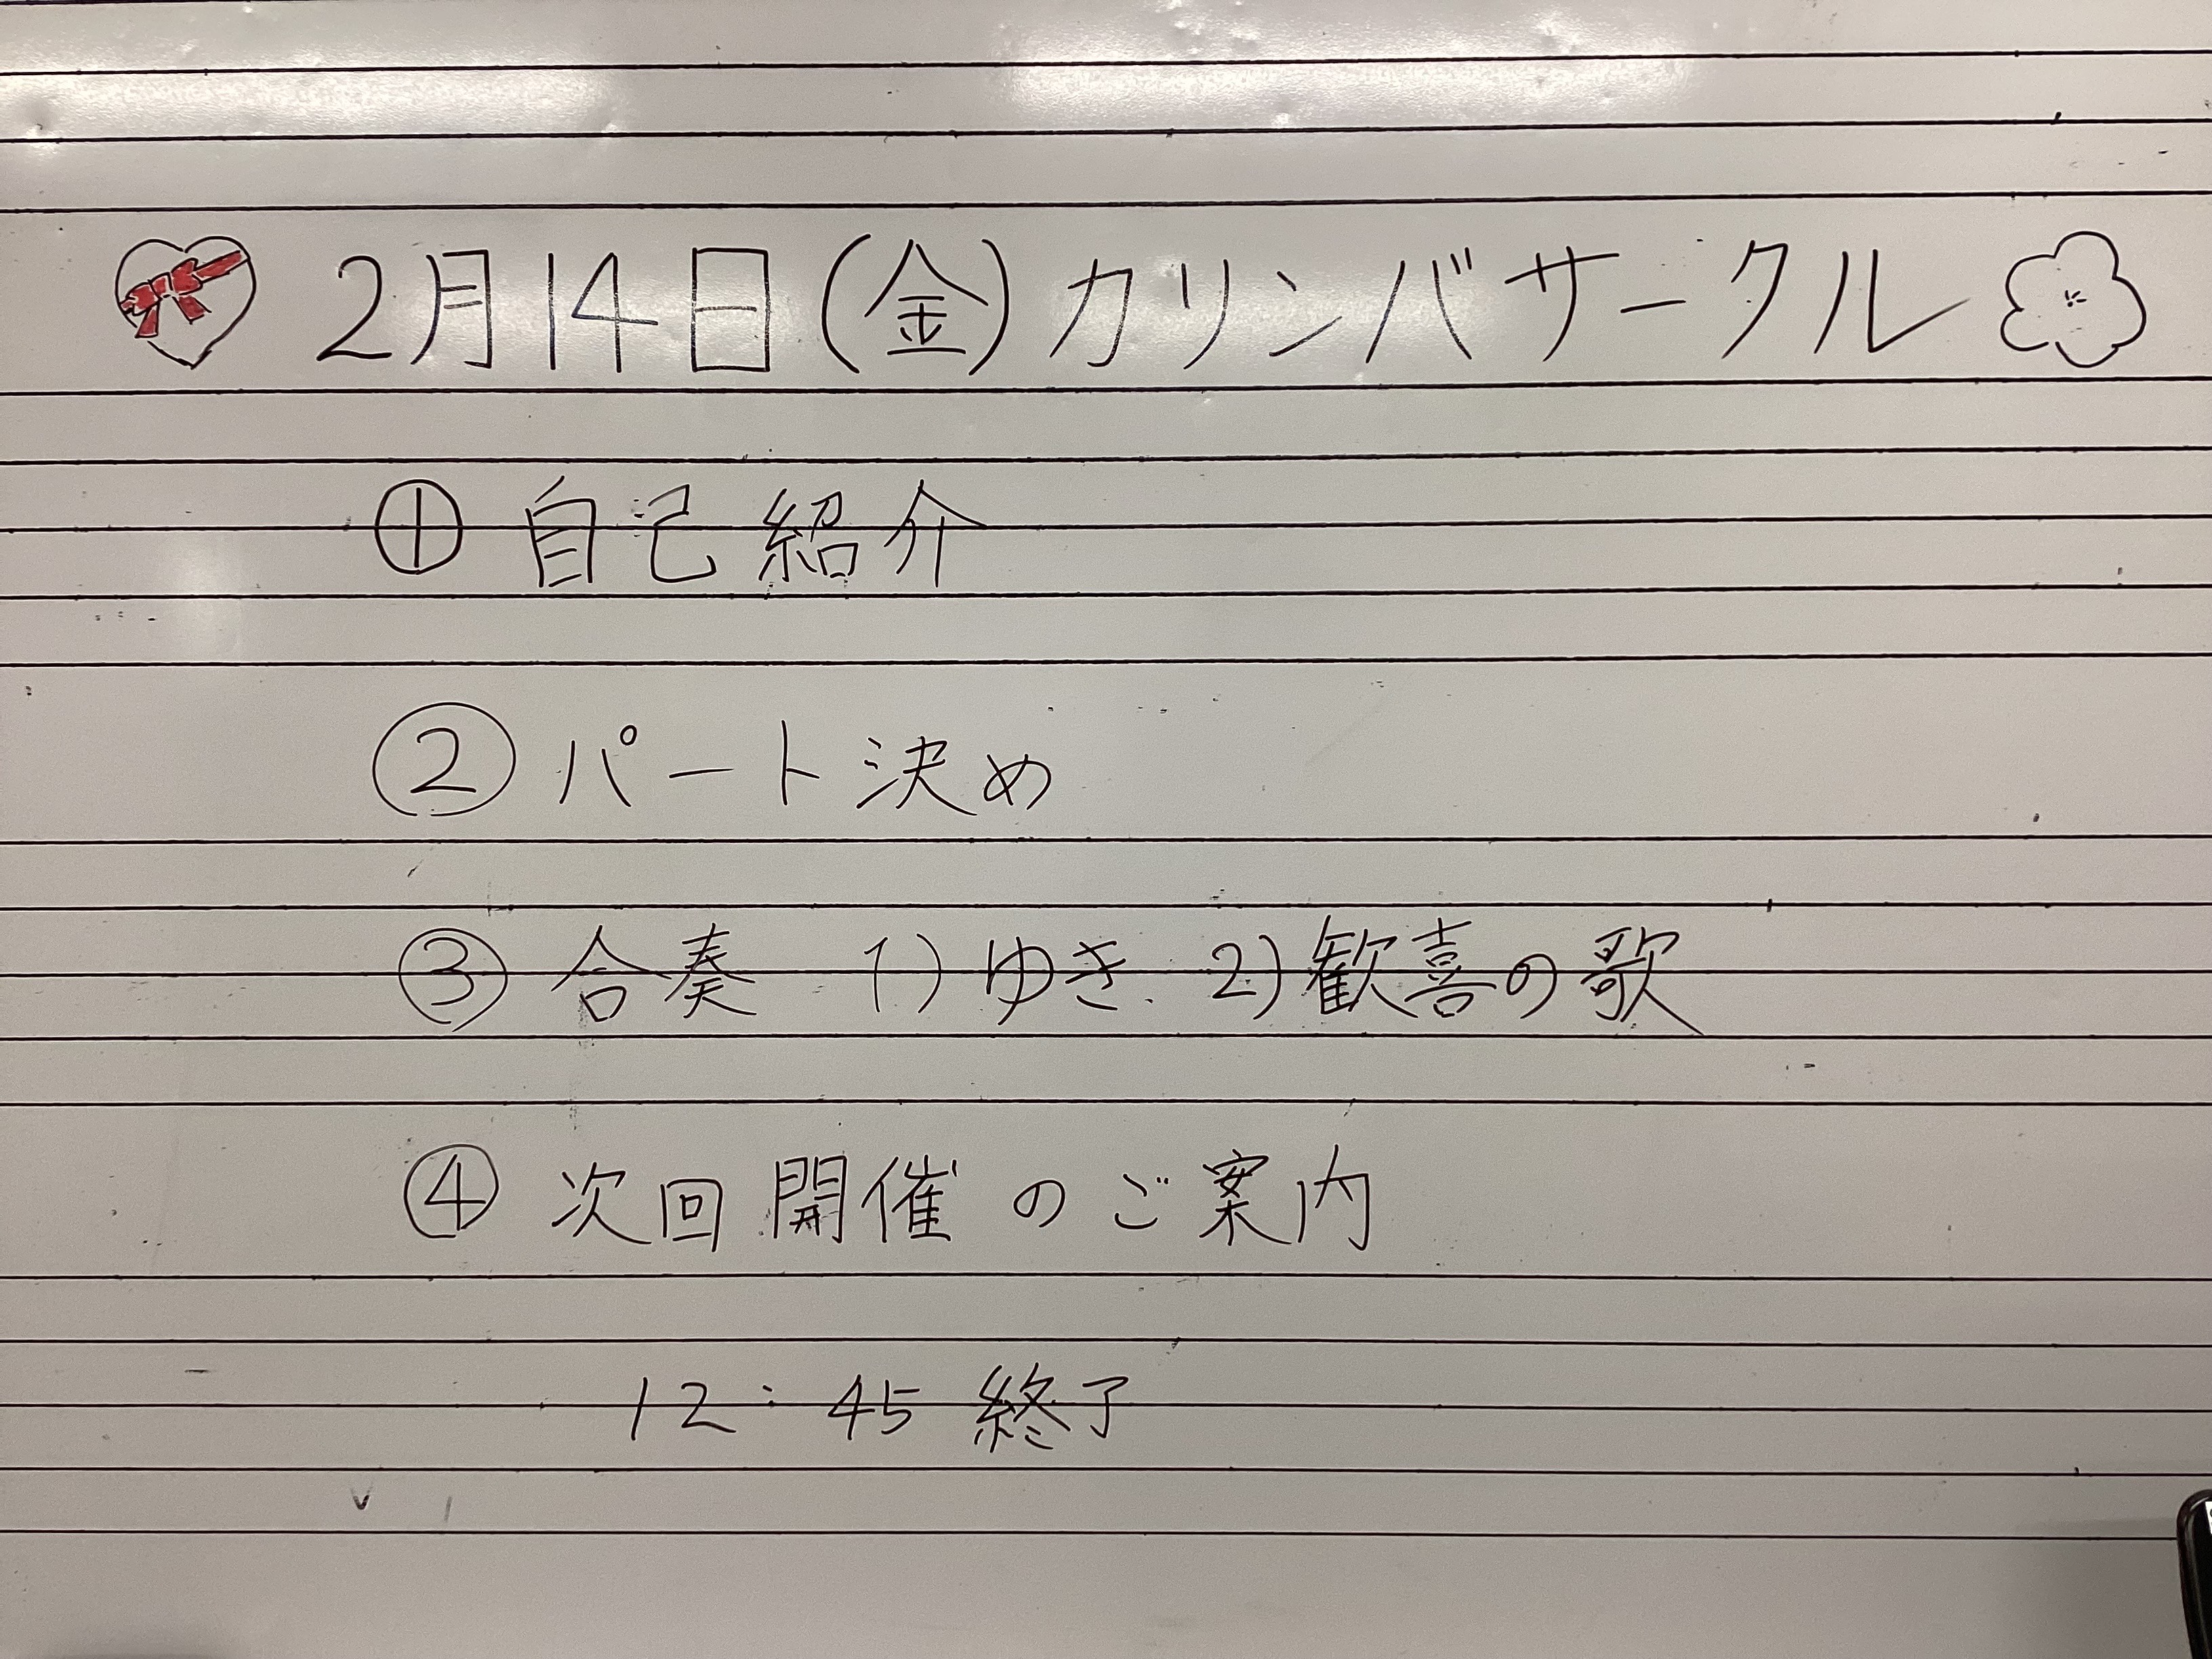 2月14日(金)カリンバサークル
① 自己紹介
② パート決め
③ 合奏 1)ゆき 2)歓喜の歌
④ 次回開催のご案内
12:45 終了